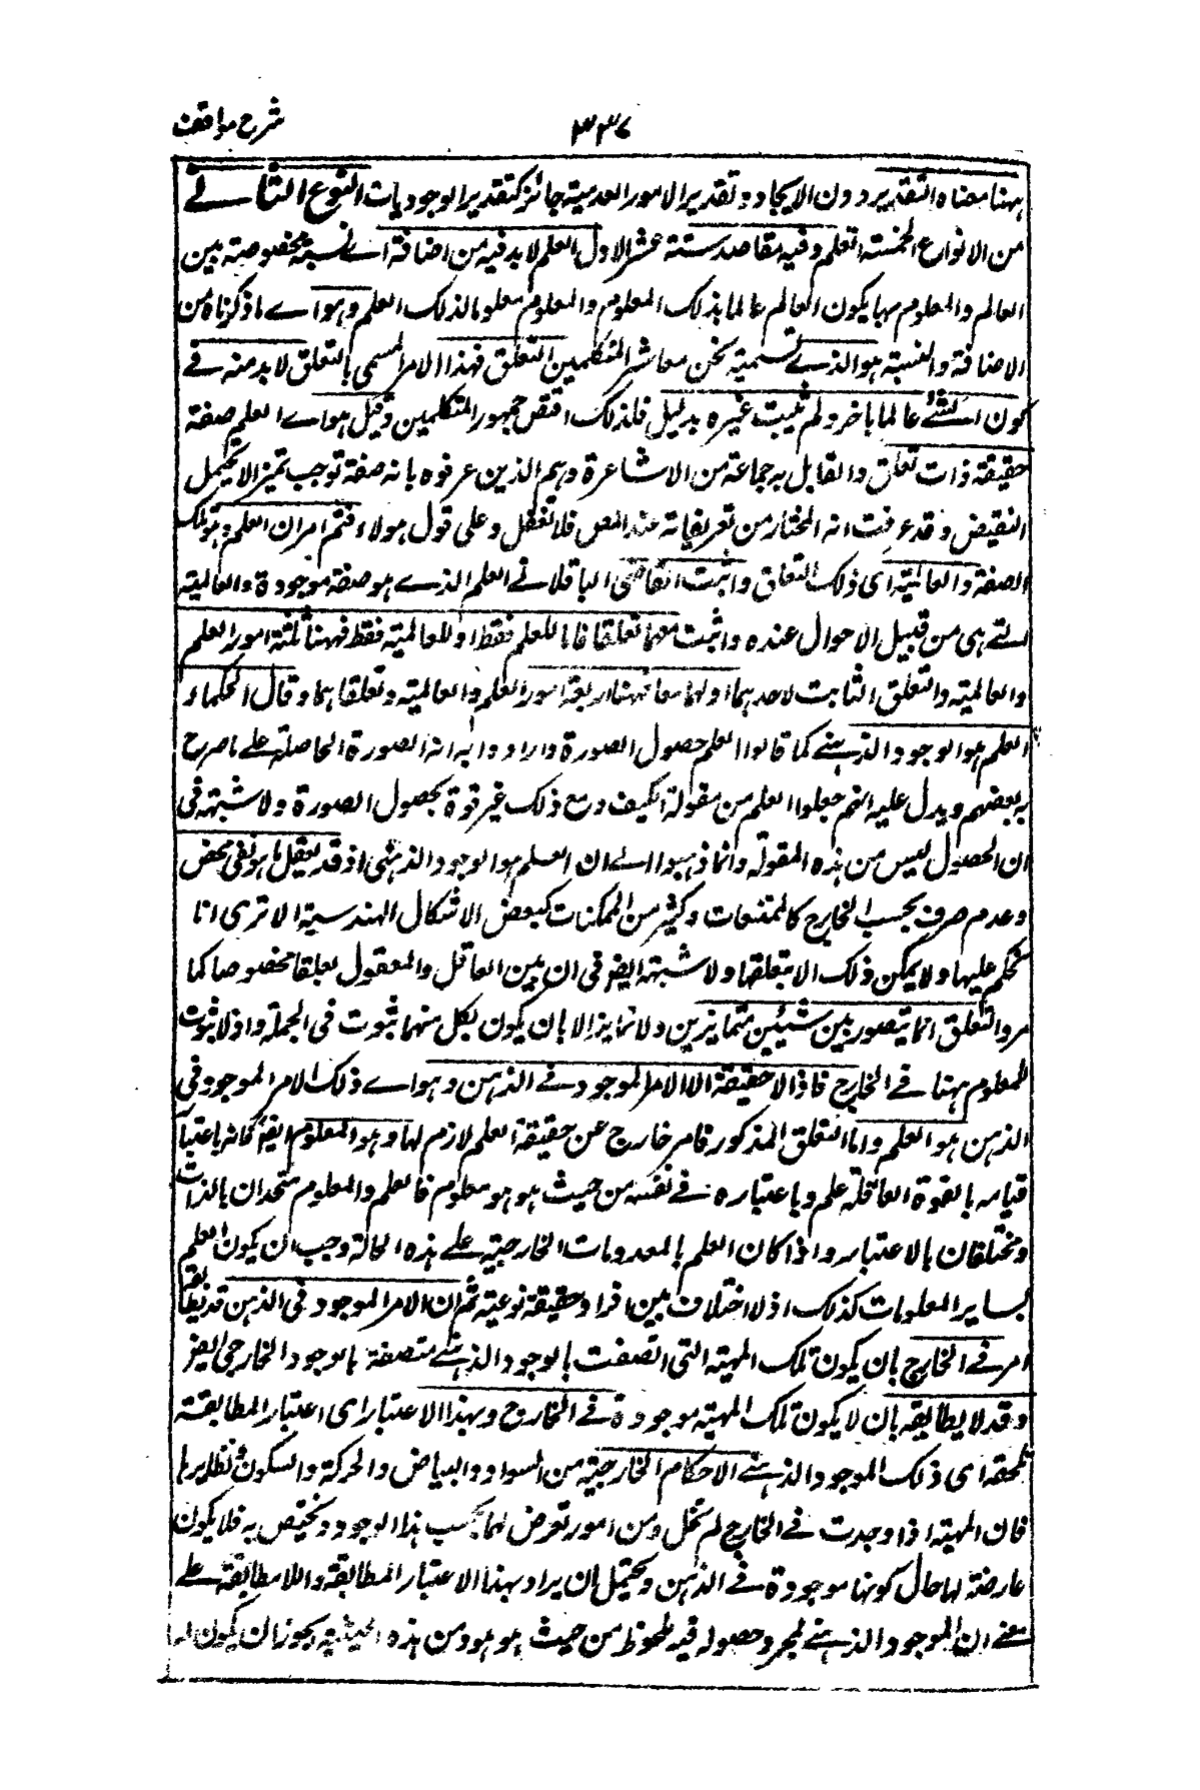 شرح مواقف
٣٣٧
ههنا معناه التقدير دون الايجاد وتقدير الامور العدمية جائز كتقدير الوجوديات النوع الثانے
من الانواع الخمسة العلم وفيه مقاصد ستة عشر الاول العلم لابد فيه من اضافة اے نسبة مخصوصة بين
العالم والمعلوم بها يكون العالم عالما بذلك المعلوم والمعلوم معلوما لذلك العلم وهو اے ما ذكرناه من
الاضافة والنسبة هو الذے نسميه نحن معاشر المتكلمين التعلق فهذا الامر المسمى بالتعلق لابد منه فے
كون الشئے عالما باخر ولم يثبت غيره بدليل فلذلك اقتصر جمهور المتكلمين وقيل هو اے العلم صفة
حقيقة ذات تعلق والقايل به جماعة من الاشاعرة وهم الذين عرفوه بانه صفة توجب تميزا لا يحتمل
النقيض وقد عرفت انه المختار من تعريفاته عند المص فلا تغفل وعلى قول هولاء فثم امران العلم وهو تلك
الصفة والعالمية اى ذلك التعلق واثبت القاضى الباقلانے العلم الذے هو صفة موجودة والعالمية
التے هى من قبيل الاحوال عنده واثبت معهما تعلقا فاما للعلم فقط او للعالمية فقط فههنا ثلثة امور العلم
والعالمية والتعلق الثابت لاحدهما او لهما معا فههنا اربعة امور العلم والعالمية وتعلقاهما وقال الحكماء
العلم هو الوجود الذهنے كما قالوا العلم حصول الصورة وارادوا به انه الصورة الحاصلة علے ما صرح
به بعضهم ويدل عليه انهم جعلوا العلم من مقولة الكيف ومع ذلك عبروه بحصول الصورة ولا شبهة فى
ان الحصول ليس من هذه المقولة وانما ذهبوا الے ان العلم هو الوجود الذهنى اذ قد يعقل ما هو نفى محض
وعدم صرف بحسب الخارج كالممتنعات وكثير من الممكنات كبعض الاشكال الهندسية الا ترى انا
نحكم عليها ولا يمكن ذلك الا بتعلقها ولا شبهة ايض فى ان بين العاقل والمعقول تعلقا مخصوصا كما
مر والتعلق انما يتصور بين شيئين متمايزين ولا تمايز الا بان يكون لكل منهما ثبوت فى الجملة واذ لا ثبوت
للمعلوم ههنا فے الخارج فاذا لا حقيقة الا الامر الموجود فے الذهن وهو اے ذلك الامر الموجود فى
الذهن هو العلم واما التعلق المذكور فامر خارج عن حقيقة العلم لازم لها وهو المعلوم ايضا فانه باعتبار
قيامه بالقوة العاقلة علم وباعتباره فے نفسه من حيث هو هو معلوم فالعلم والمعلوم متحدان بالذات
ومختلفان بالاعتبار واذا كان العلم بالمعدومات الخارجية علے هذه الحالة وجب ان يكون العلم
بساير المعلومات كذلك اذ لا اختلاف بين افراد حقيقة نوعية ثم ان الامر الموجود فى الذهن قد يطابقه
امر فے الخارج بان يكون تلك المهية التى اتصفت بالوجود الذهنے متصفة بالوجود الخارجى ايض
وقد لا يطابقه بان لا يكون تلك المهية موجودة فے الخارج وبهذا الاعتبار اى اعتبار المطابقة
تلحقه اى ذلك الموجود الذهنے الاحكام الخارجية من السواد والبياض والحركة والسكون ونظايرها
فان المهية اذا وجدت فے الخارج لم تخل من امور تعرض لها بحسب هذا الوجود وتختص به فلا يكون
عارضة لها حال كونها موجودة فے الذهن ويحتمل ان يراد بهذا الاعتبار المطابقة واللا مطابقة علے
معنے ان الموجود الذهنے لمجرد حصوله فيه ملحوظ من حيث هو هو ومن هذه الحيثية يجوز ان يكون لها